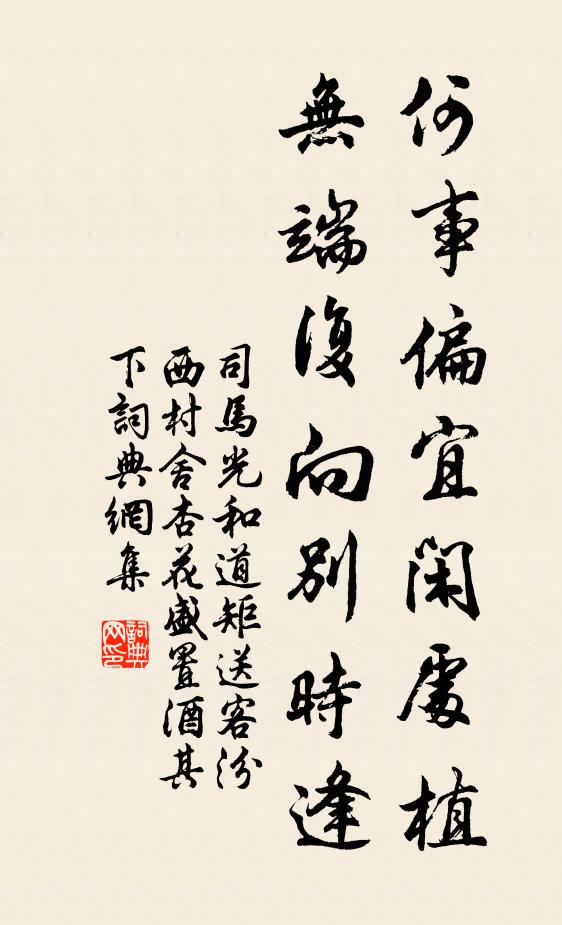 何事偏宜閑處植
無端復向別時逢
司馬光和道矩送客汾
西村舍杏花盛置酒其
下詞典網集
詞典
网印